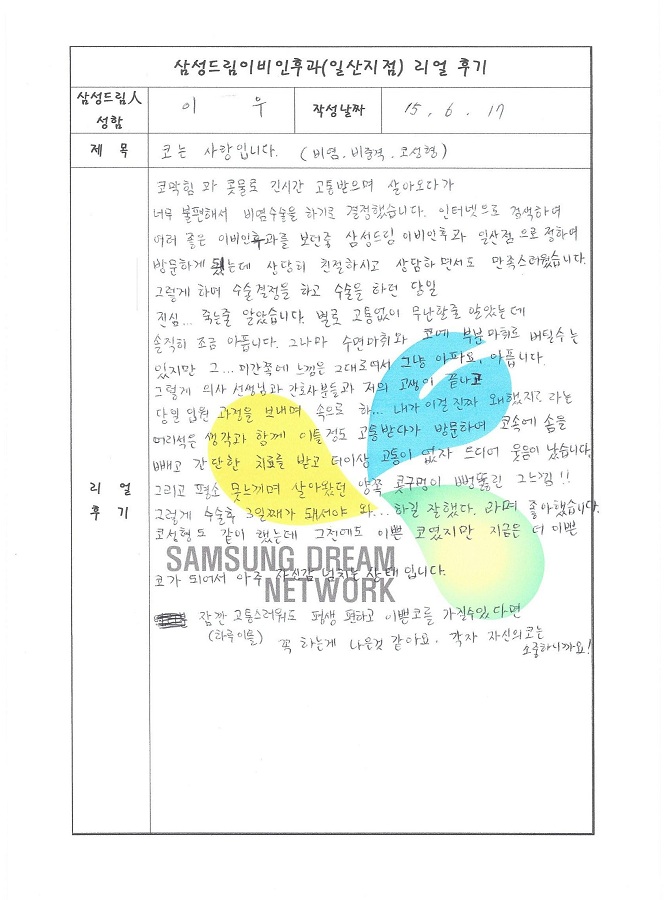 삼성드림이비인후과(일산지점) 리얼 후기
삼성드림人 성함
이 우
작성날짜
15. 6. 17
제 목
코는 사랑입니다. (비염. 비중격. 코성형)
리 얼 후 기
코막힘과 콧물로 긴시간 고통받으며 살아오다가
너무 불편해서 비염수술을 하기로 결정했습니다. 인터넷으로 검색하여
여러 좋은 이비인후과를 보던중 삼성드림 이비인후과 일산점으로 정하여
방문하게 됐는데 상당히 친절하시고 상담하면서도 만족스러웠습니다.
그렇게 하며 수술결정을 하고 수술을 하던 당일
진심... 죽는줄 알았습니다. 별로 고통없이 무난할줄 알았는데
솔직히 조금 아픕니다. 그나마 수면마취와 코에 부분마취로 버틸수는
있지만 그... 미간쪽에 느낌은 그대로여서 그냥 아파요. 아픕니다.
그렇게 의사 선생님과 간호사분들과 저의 고생이 끝나고
당일 입원 과정을 보내며 속으로 하... 내가 이걸 진짜 왜했지? 라는
어리석은 생각과 함께 이틀정도 고통받다가 방문하여 코속에 솜을
빼고 간단한 치료를 받고 더이상 고통이 없자 드디어 웃음이 났습니다.
그리고 평소 못느끼며 살아왔던 양쪽 콧구멍이 뻥뚫린 그느낌!!
그렇게 수술후 3일째가 돼서야 와... 하길 잘했다. 라며 좋아했습니다.
코성형도 같이 했는데 그전에도 이쁜 코였지만 지금은 더 이쁜
코가 되어서 아주 자신감 넘치는 상태 입니다.
잠깐 고통스러워도 평생 편하고 이쁜코를 가질수있다면
(하루이틀) 꼭 하는게 나은것 같아요. 각자 자신의 코는
소중하니까요!
SAMSUNG DREAM
NETWORK